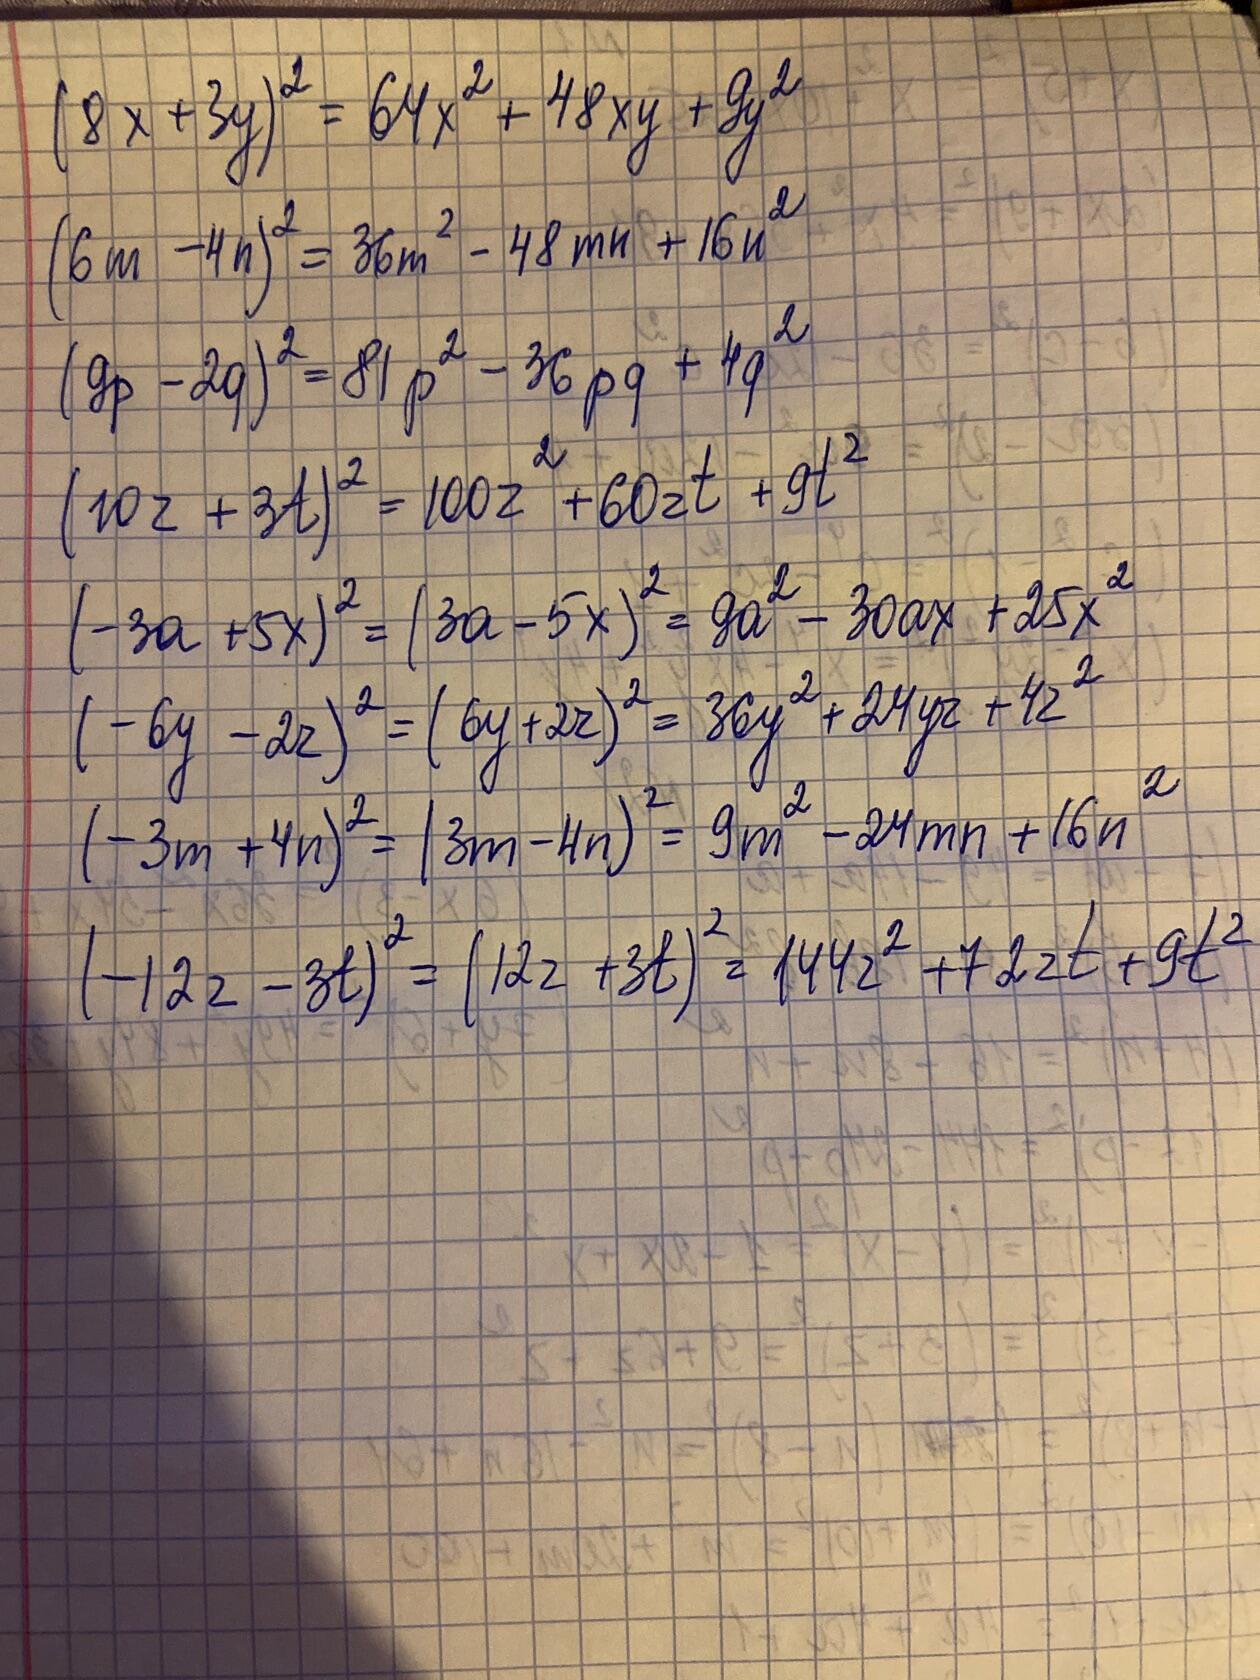 (8x + 3y)² = 64x² + 48xy + 9y²
(6m - 4n)² = 36m² - 48mn + 16n²
(9p - 2q)² = 81p² - 36pq + 4q²
(10z + 3t)² = 100z² + 60zt + 9t²
(-3a + 5x)² = (3a - 5x)² = 9a² - 30ax + 25x²
(-6y - 2z)² = (6y + 2z)² = 36y² + 24yz + 4z²
(-3m + 4n)² = (3m - 4n)² = 9m² - 24mn + 16n²
(-12z - 3t)² = (12z + 3t)² = 144z² + 72zt + 9t²